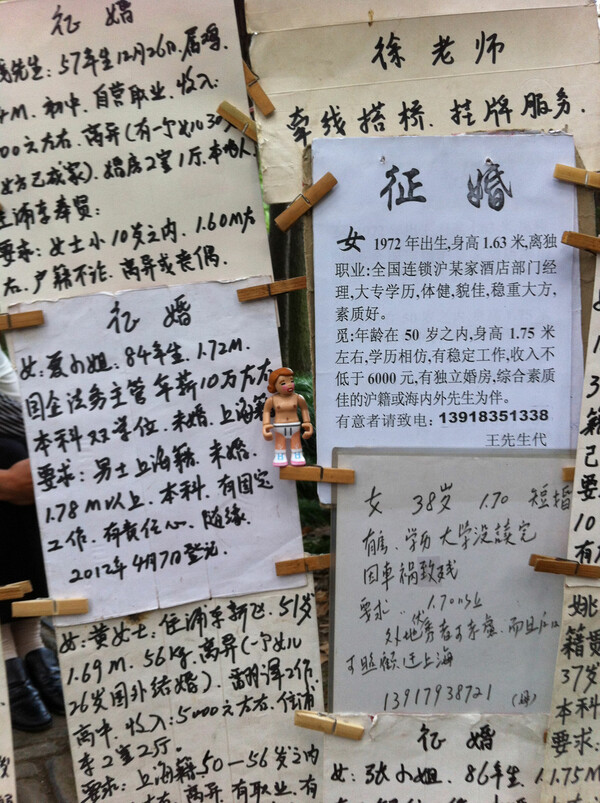 征 婚
先生:57年生12月26日.属鸡.
M.初中.自营职业.收入:
00元左右.离异(有一个女儿30
女方已成家).婚房2室1厅.本地人
浦东奉贤:
要求:女士小10岁之内.1.60M左
右.户籍不论.离异或丧偶.
徐老师
牵线搭桥.挂牌服务.
征 婚
女 1972年出生,身高1.63米,离独
职业:全国连锁沪某家酒店部门经
理,大专学历,体健,貌佳,稳重大方,
素质好。
觅:年龄在50岁之内,身高1.75米
左右,学历相仿,有稳定工作,收入不
低于6000元,有独立婚房,综合素质
佳的沪籍或海内外先生为伴。
有意者请致电:13918351338
王先生代
征 婚
女:夏小姐.84年生.1.72M.
国企法务主管 年薪10万左右
本科双学位.未婚.上海籍
要求:男士上海籍.未婚.
1.78M以上.本科.有固定
工作.有责任心.随缘.
2012年4月7日登记.
女 38岁 1.70 短婚
有房、学历 大学没读完
因车祸致残
要求:1.70以上
外地优秀者可考虑.而且
可照顾迁上海
13917938721 (母)
女:黄女士:住浦东新区.51岁
1.69M.56kg.离异(一个女儿
26岁国外结婚).翻译工作.
高中.收入:5000元左右.住浦
东2室2厅.
要求:上海籍.50—56岁之内
左右.离异.有职业.有
征 婚
女:张小姐.86年生.1.75M
姚
籍贯
37岁
本科
要求: